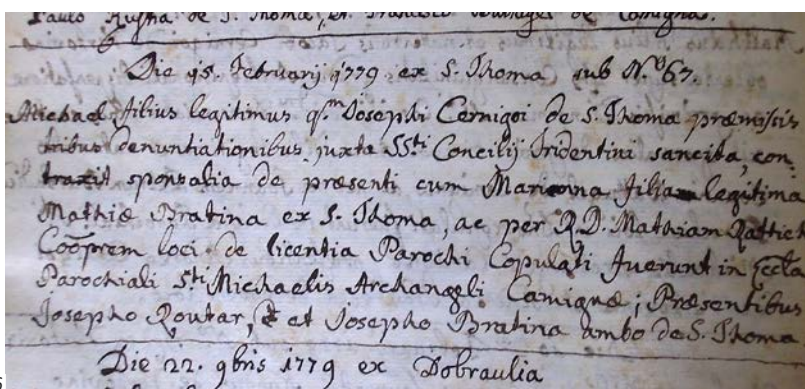 Paulo Rustia de S. Thoma, et Francisco de Camigna.
6
Die 15. Februarij 1779 ex S. Thoma sub N.º 67.
Michael filius legitimus q.m Josephi Cernigoi de S. Thoma præmissis
tribus denuntiationibus juxta SSti Concilij Tridentini sancita, con-
traxit sponsalia de præsenti cum Marianna filia legitima
Mathiæ Bratina ex S. Thoma, ac per R.D. Mathiam
Cooprem loci de licentia Parochi Copulati fuerunt in Eccla
Parochiali Sti Michaelis Archangeli Camignæ; Præsentibus
Josepho Routar, et Josepho Bratina ambo de S. Thoma
Die 22. 9bris 1779 ex Dobraulia